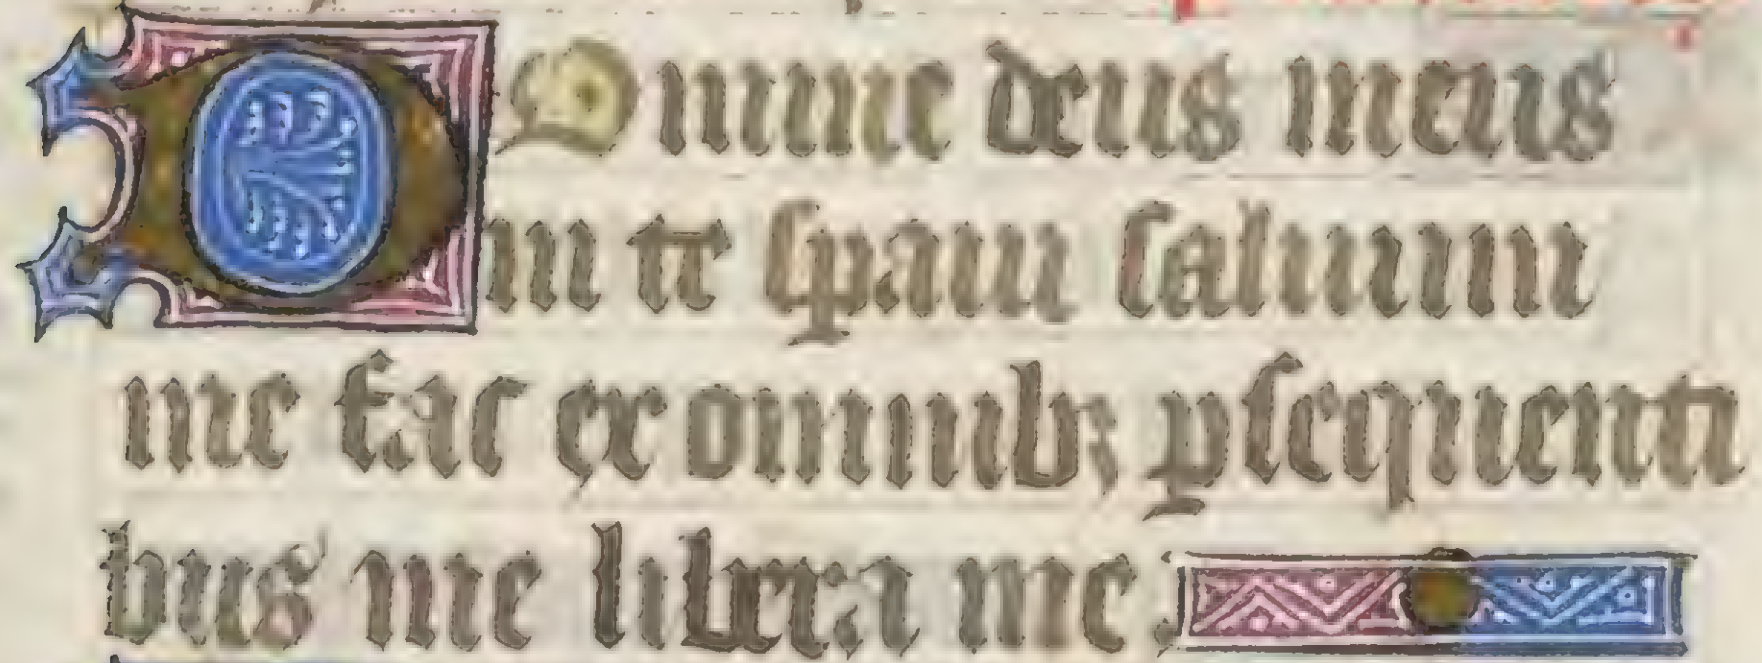 DOmine deus meus
in te ſꝑaui ſaluum
me fac ex omnibꝫ ꝑſequenti
bus me libera me.